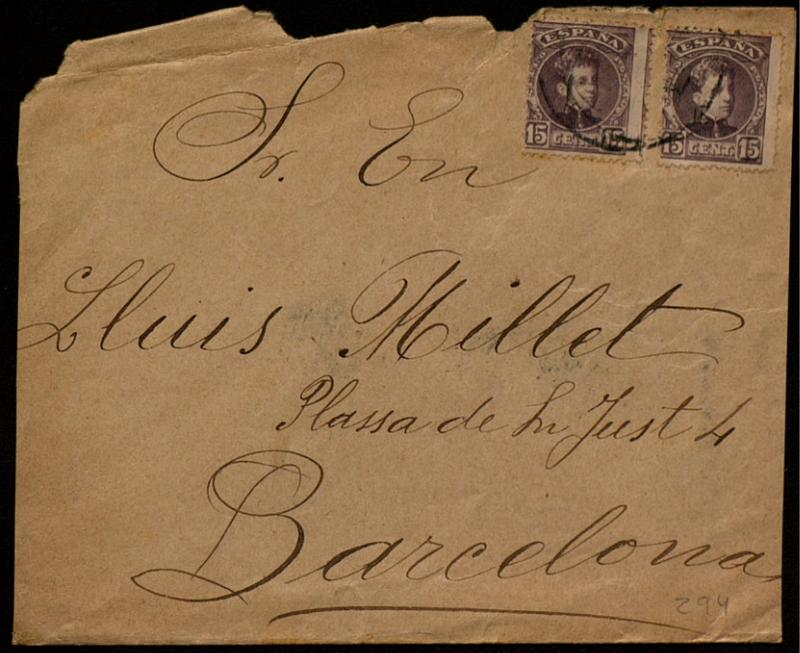 ESPAÑA ESPAÑA
15 CENT. 15 15 CENT. 15
Sr. En
Lluis Millet
Plassa de Sn Just 4
Barcelona
294